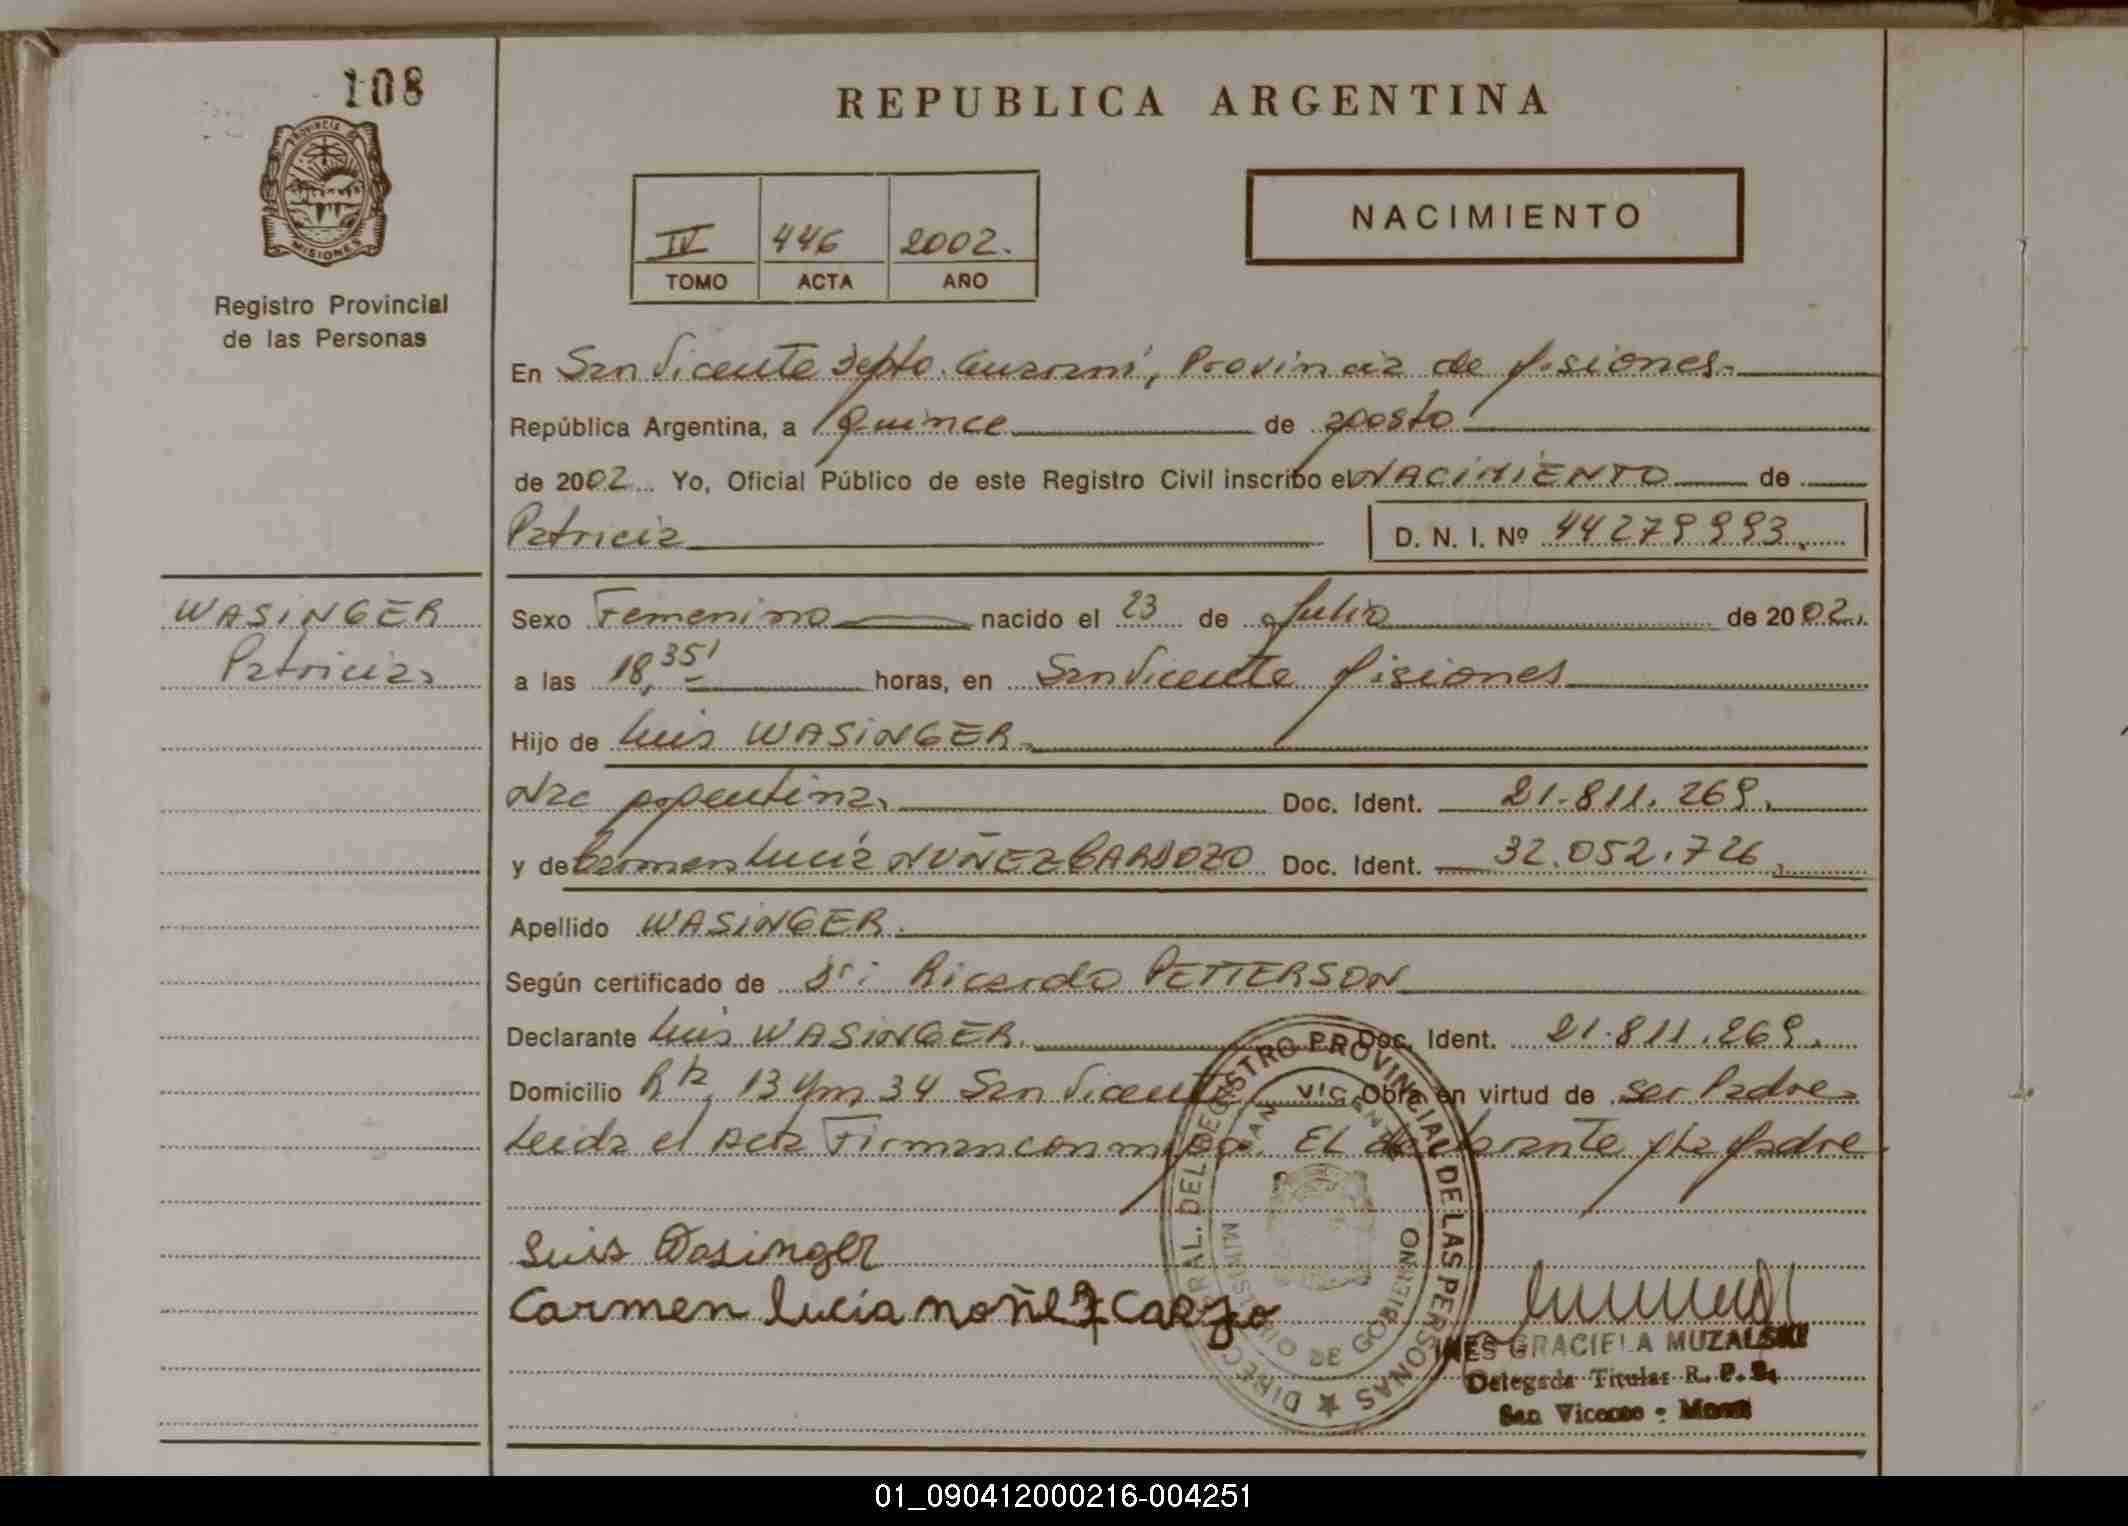 108
PROVINCIA DE
MISIONES
Registro Provincial
de las Personas
REPUBLICA ARGENTINA
IV 446 2002.
TOMO ACTA AÑO
NACIMIENTO
En San Vicente Depto. Guaraní, Provincia de Misiones.
República Argentina, a Quince de agosto
de 2002 Yo, Oficial Público de este Registro Civil inscribo el NACIMIENTO de
Patricia D. N. I. Nº 44279993.
WASINGER
Patricia
Sexo Femenino nacido el 23 de Julio de 2002.
a las 18,35' horas, en San Vicente Misiones
Hijo de Luis WASINGER
Nac argentina, Doc. Ident. 21.811.269.
y de Carmen Lucía NUÑEZ CARDOZO Doc. Ident. 32.052.726
Apellido WASINGER.
Según certificado de Ricardo PETTERSON
Declarante Luis WASINGER. Doc. Ident. 21.811.269.
Domicilio Rta 13 Km 34 San Vicente Obra en virtud de ser Padre
Leida el Acta Firman conmigo. El declarante y la Madre
Luis Wasinger
Carmen lucía noñez
DIRECC. GRAL. DEL REGISTRO PROVINCIAL DE LAS PERSONAS
SAN VICENTE
MINISTERIO DE GOBIERNO
INES GRACIELA MUZALSKI
Delegada Titular R. P. P.
San Vicente - Mnes
01_090412000216-004251